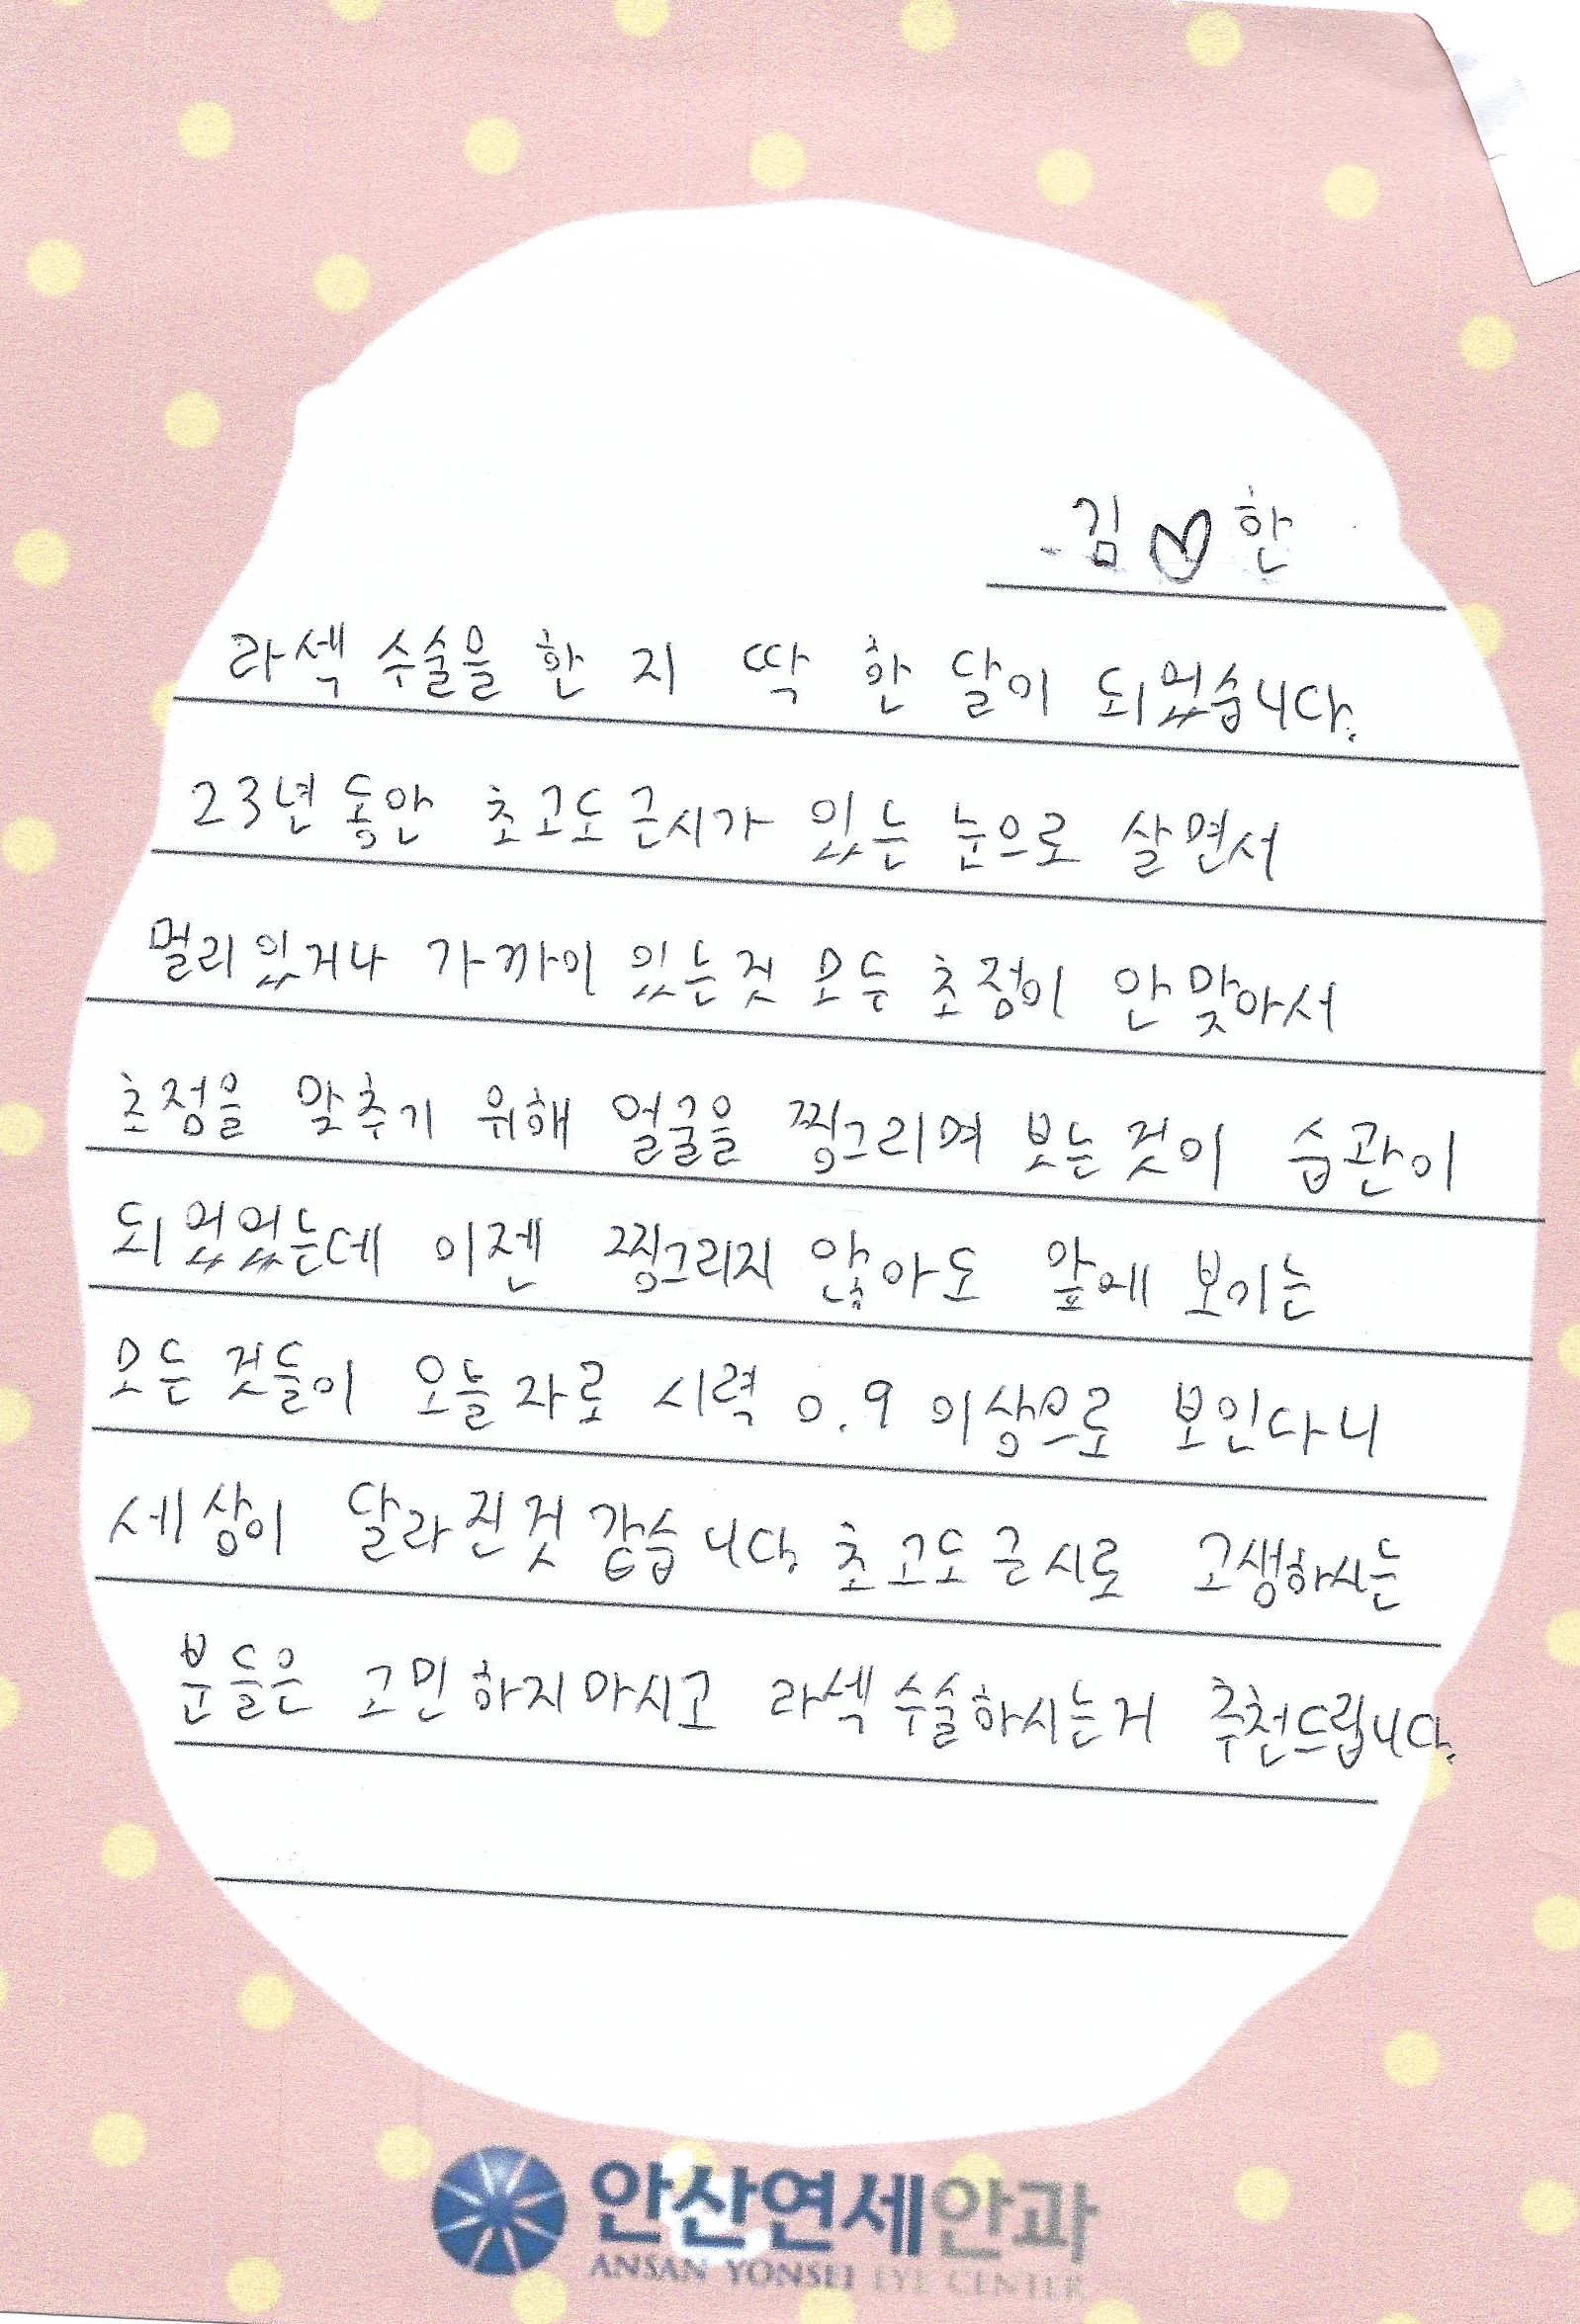 - 김♡한
라섹 수술을 한 지 딱 한 달이 되었습니다.
23년 동안 초고도 근시가 있는 눈으로 살면서
멀리 있거나 가까이 있는것 모두 초점이 안 맞아서
초점을 맞추기 위해 얼굴을 찡그리며 보는 것이 습관이
되었었는데 이젠 찡그리지 않아도 앞에 보이는
모든 것들이 오늘자로 시력 0.9 이상으로 보인다니
세상이 달라진것 같습니다. 초고도 근시로 고생하시는
분들은 고민하지마시고 라섹 수술하시는거 추천드립니다.
안산연세안과
ANSAN YONSEI EYE CENTER